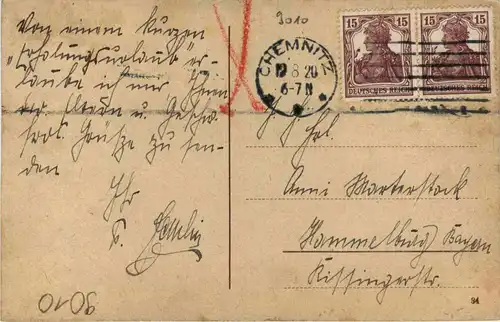 Von einem kurzen
"Erholungsurlaub" er-
laube ich mir Ihnen
Eltern u. Geschw.
Grüße zu sen-
den
Ihr
9010
CHEMNITZ
8 20
6-7N
15 15 15 15
DEUTSCHES REICH DEUTSCHES REICH
Frl.
Anni Marterstock
Hammelburg Bayern
Kissingerstr.
34
9010